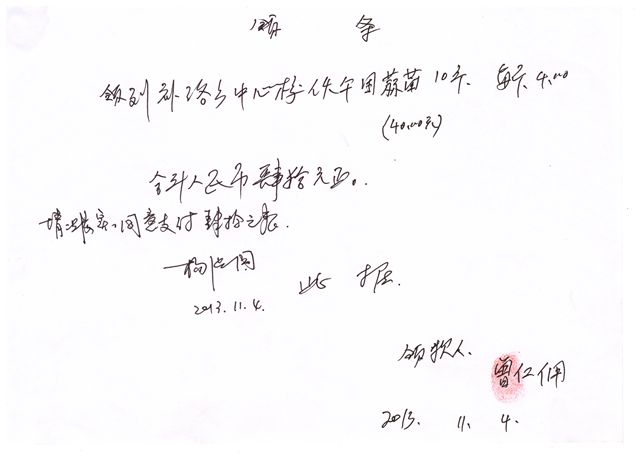 领 条
领到补洛乡中心校伙午用蒜苗10斤. 每斤4.00
(40.00元)
合计人民币肆拾元正。
情况属实，同意支付肆拾元整.
杨
2013.11.4.
此 据.
领款人.
曾仁佣
2013. 11. 4.